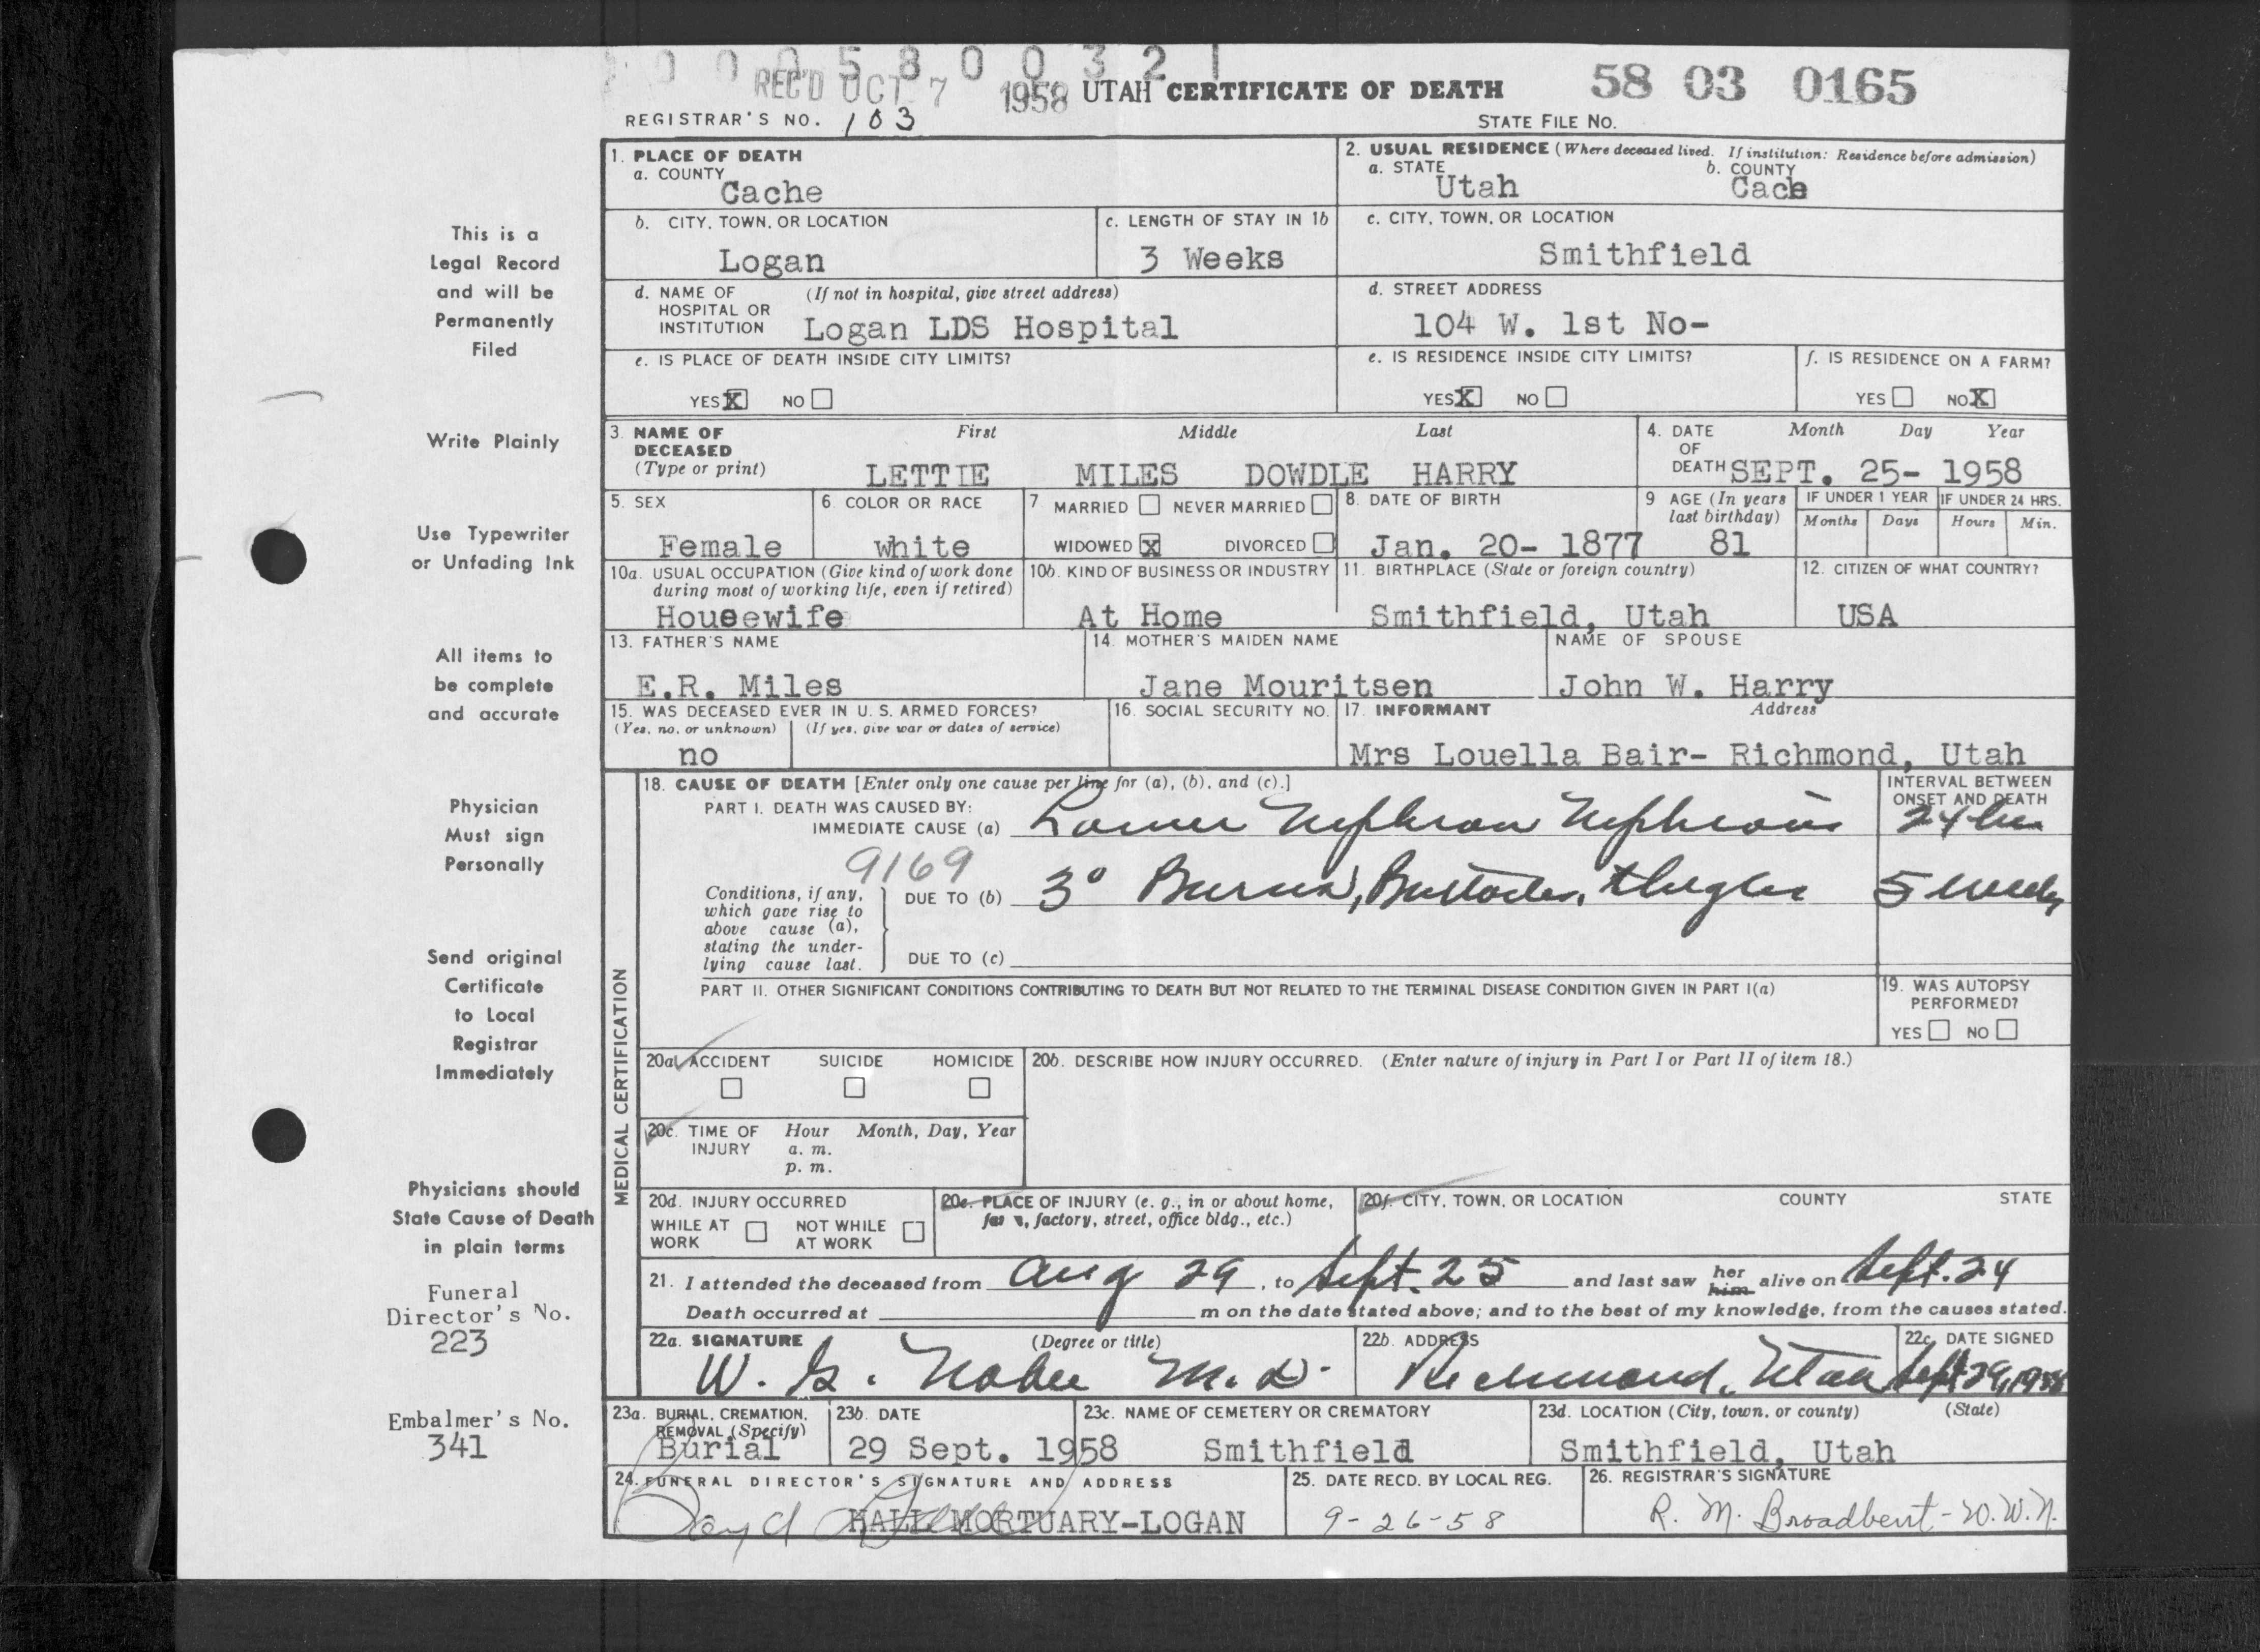 0 0 0 5 8 0 0 3 2 1
REC'D OCT 7 1958 UTAH CERTIFICATE OF DEATH 58 03 0165
REGISTRAR'S NO. 103 STATE FILE NO.
1. PLACE OF DEATH
a. COUNTY
Cache
2. USUAL RESIDENCE (Where deceased lived. If institution: Residence before admission)
a. STATE b. COUNTY
Utah Cach
b. CITY, TOWN, OR LOCATION
Logan
c. LENGTH OF STAY IN 1b
3 Weeks
c. CITY, TOWN, OR LOCATION
Smithfield
d. NAME OF HOSPITAL OR INSTITUTION (If not in hospital, give street address)
Logan LDS Hospital
d. STREET ADDRESS
104 W. 1st No-
e. IS PLACE OF DEATH INSIDE CITY LIMITS?
YES X NO
e. IS RESIDENCE INSIDE CITY LIMITS?
YES X NO
f. IS RESIDENCE ON A FARM?
YES NO X
3. NAME OF DECEASED (Type or print) First Middle Last
LETTIE MILES DOWDLE HARRY
4. DATE OF DEATH Month Day Year
SEPT. 25- 1958
5. SEX
Female
6. COLOR OR RACE
white
7 MARRIED NEVER MARRIED
WIDOWED X DIVORCED
8. DATE OF BIRTH
Jan. 20- 1877
9 AGE (In years last birthday)
81
IF UNDER 1 YEAR IF UNDER 24 HRS.
Months Days Hours Min.
10a. USUAL OCCUPATION (Give kind of work done during most of working life, even if retired)
Housewife
10b. KIND OF BUSINESS OR INDUSTRY
At Home
11. BIRTHPLACE (State or foreign country)
Smithfield, Utah
12. CITIZEN OF WHAT COUNTRY?
USA
13. FATHER'S NAME
E.R. Miles
14. MOTHER'S MAIDEN NAME
Jane Mouritsen
NAME OF SPOUSE
John W. Harry
15. WAS DECEASED EVER IN U. S. ARMED FORCES?
(Yes, no, or unknown) (If yes, give war or dates of service)
no
16. SOCIAL SECURITY NO.
17. INFORMANT Address
Mrs Louella Bair- Richmond, Utah
18. CAUSE OF DEATH [Enter only one cause per line for (a), (b), and (c).]
INTERVAL BETWEEN ONSET AND DEATH
PART I. DEATH WAS CAUSED BY:
IMMEDIATE CAUSE (a) Lower Nephron Nephrosis 24 hrs
9169
Conditions, if any, which gave rise to above cause (a), stating the underlying cause last.
DUE TO (b) 3° Burns, Buttocks, thighs 5 weeks
DUE TO (c)
PART II. OTHER SIGNIFICANT CONDITIONS CONTRIBUTING TO DEATH BUT NOT RELATED TO THE TERMINAL DISEASE CONDITION GIVEN IN PART I(a)
19. WAS AUTOPSY PERFORMED?
YES NO
MEDICAL CERTIFICATION
20a. ACCIDENT SUICIDE HOMICIDE
20b. DESCRIBE HOW INJURY OCCURRED. (Enter nature of injury in Part I or Part II of item 18.)
20c. TIME OF INJURY Hour Month, Day, Year
a. m.
p. m.
20d. INJURY OCCURRED
WHILE AT WORK NOT WHILE AT WORK
20e. PLACE OF INJURY (e. g., in or about home, farm, factory, street, office bldg., etc.)
20f. CITY, TOWN, OR LOCATION COUNTY STATE
21. I attended the deceased from Aug 29, to Sept. 25 and last saw her him alive on Sept. 24
Death occurred at m on the date stated above; and to the best of my knowledge, from the causes stated.
22a. SIGNATURE (Degree or title)
W. G. Noble M.D.
22b. ADDRESS
Richmond, Utah
22c. DATE SIGNED
Sept 29, 1958
23a. BURIAL, CREMATION, REMOVAL (Specify)
Burial
23b. DATE
29 Sept. 1958
23c. NAME OF CEMETERY OR CREMATORY
Smithfield
23d. LOCATION (City, town, or county) (State)
Smithfield, Utah
24. FUNERAL DIRECTOR'S SIGNATURE AND ADDRESS
HALL MORTUARY-LOGAN
25. DATE RECD. BY LOCAL REG.
9-26-58
26. REGISTRAR'S SIGNATURE
R. M. Broadbent - W.W.N.
This is a
Legal Record
and will be
Permanently
Filed
Write Plainly
Use Typewriter
or Unfading Ink
All items to
be complete
and accurate
Physician
Must sign
Personally
Send original
Certificate
to Local
Registrar
Immediately
Physicians should
State Cause of Death
in plain terms
Funeral
Director's No.
223
Embalmer's No.
341